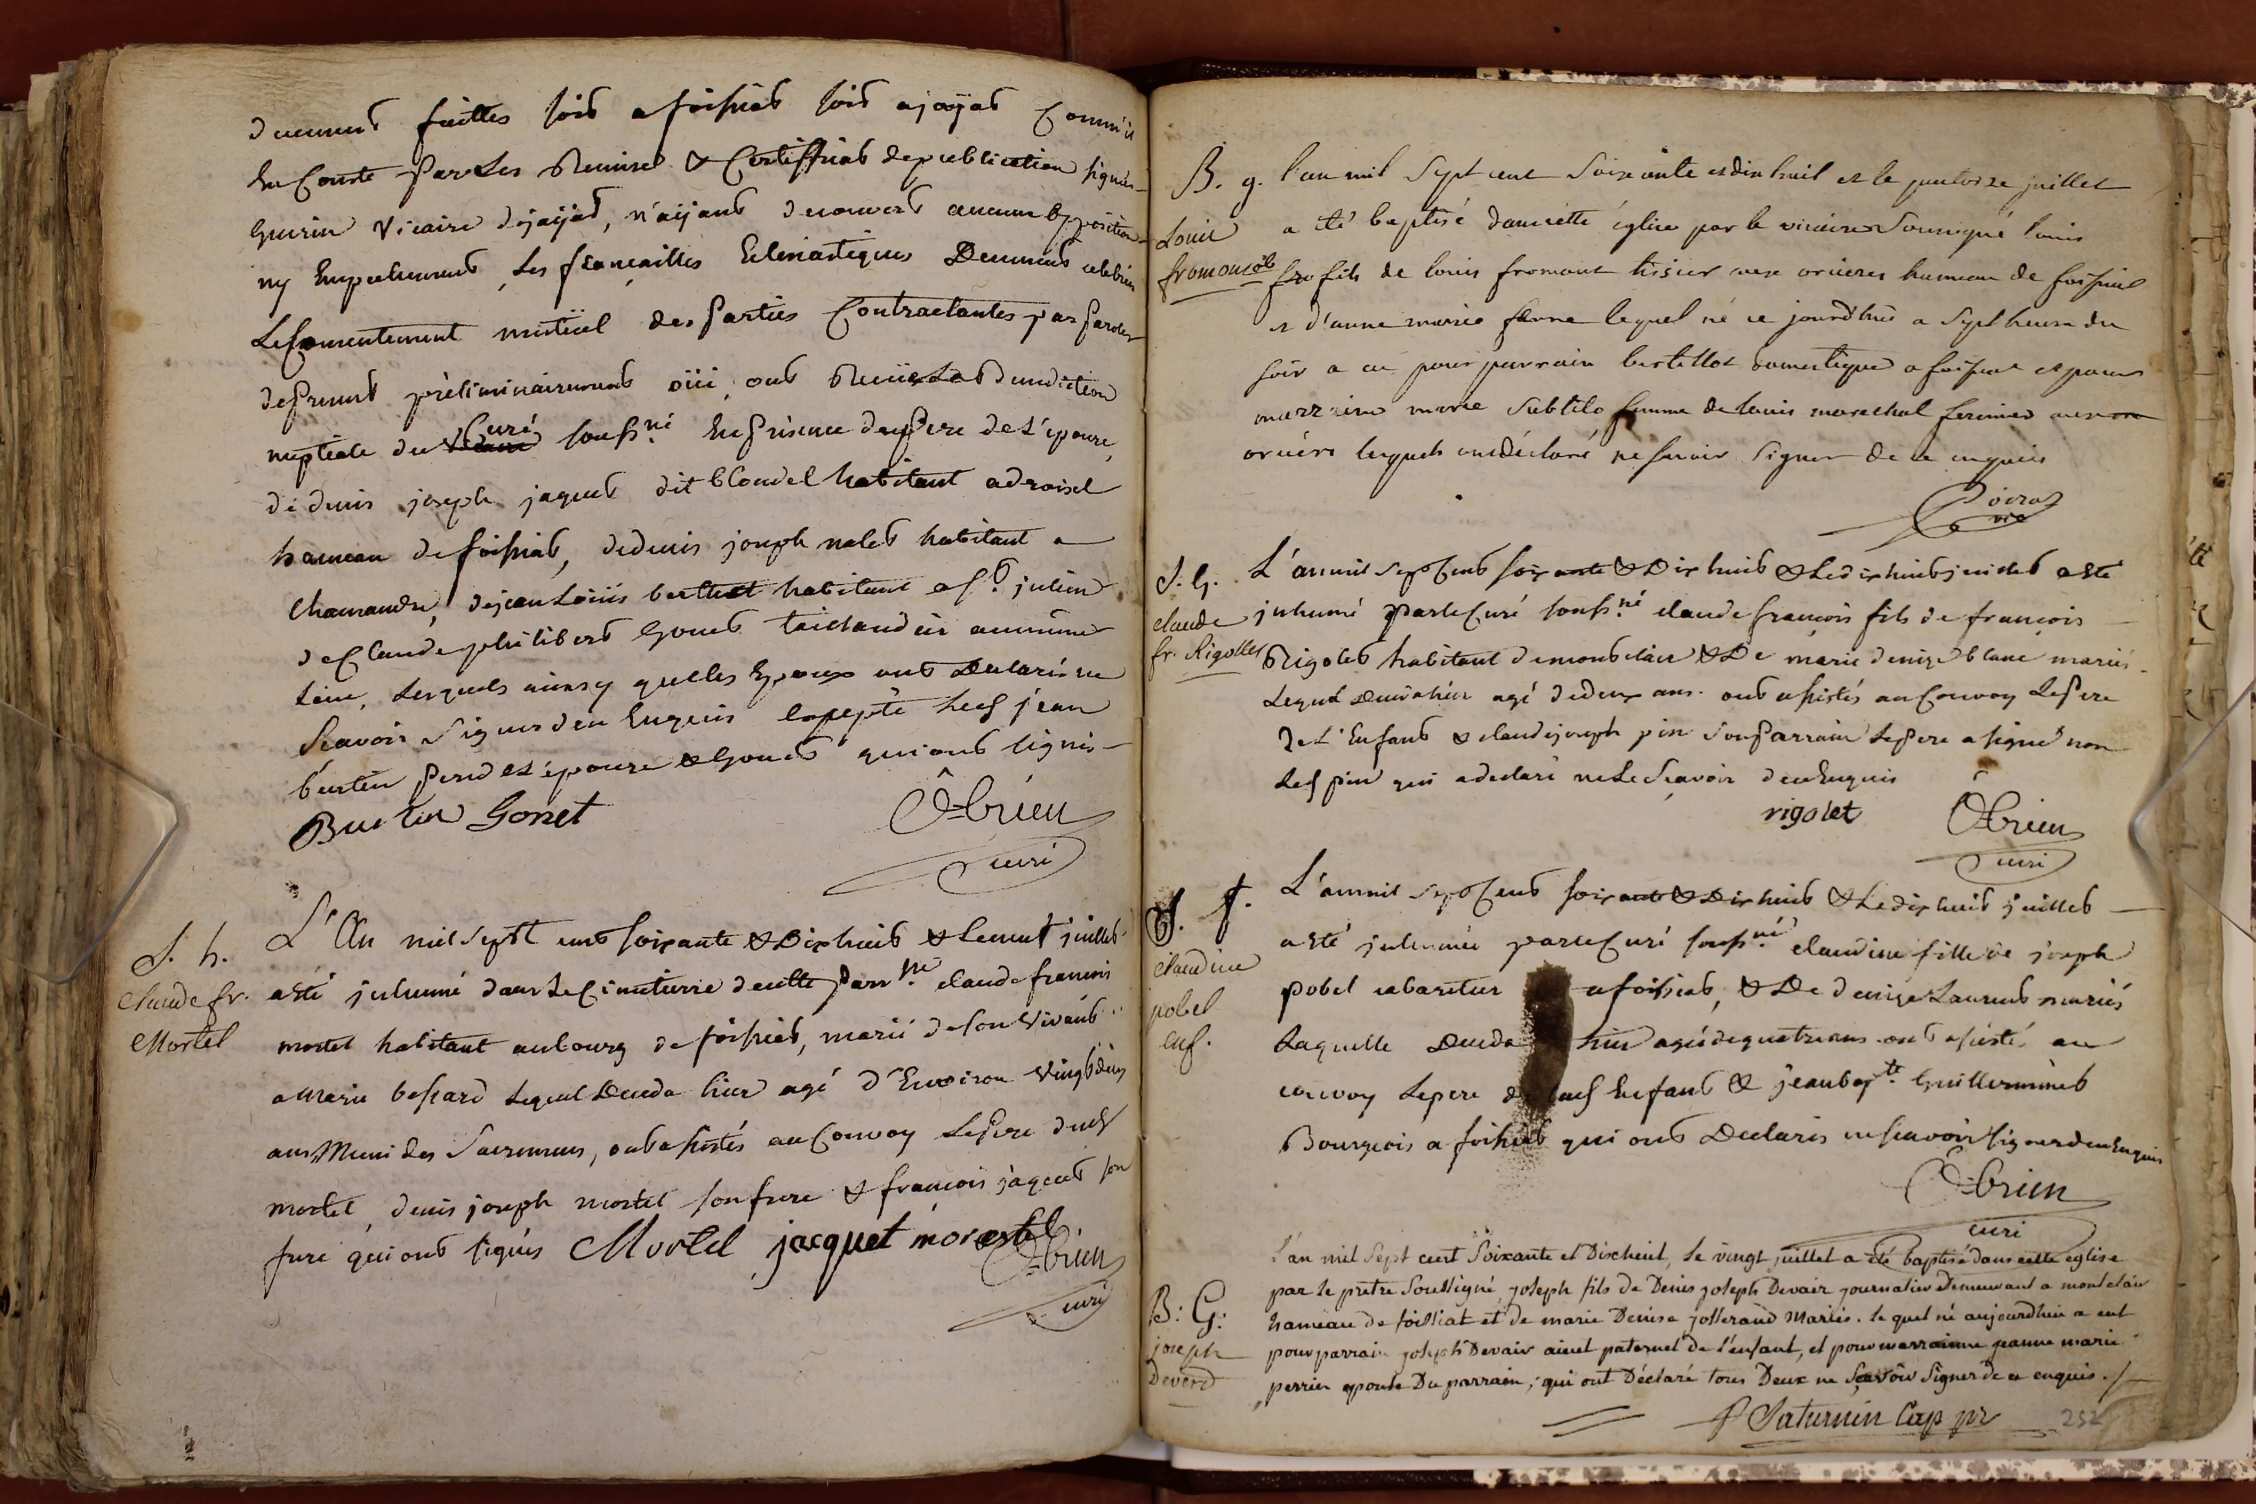 duement faittes soit a foissiat soit a jayat comm'il
En Conste Par Les Remise & Certifficat de publication signés
guerin Vicaire de jayat, n'aijant decouvert aucune opposition
ny Empechement, Les fiançailles Eclesiastiques Deument celebrées
Le Consentement mutüel des Parties Contractantes par Paroles
de Present préliminairement oüi, ont Reçüe La Benediction
nuptiale du Curé souss.né En Présence du Pere de L'épouse,
de denis joseph jaquet dit blondel habitant a
hameau de foissiat, de denis joseph nalet habitant a
Chamandre, de jean Loüis berthet habitant a s.t julien
de Claude philibert Gonet taillandier au même
Lieu, Lesquels ainsy que les Epoux ont Declarés ne
Scavoir Signer de ce Enquis Excepté Les jean
burtin Pere de L'épouse & Gonet qui ont signés
Burtin Gonet
Ôbrien
curé
S. h.
claude fr.
Mortel
L'An mil sept cent soixante & Dix huit & Le neuf juillet
a Eté inhumé dans Le Cimetierre de cette Parr.sse claude francois
mortel habitant au bourg de foissiat, marié de son Vivant
a Marie bessard Lequel Deceda hier agé d'Environ Vingt deux
ans Muni des Sacremens, ont assistés au Convoy Le Pere dud.
mortel, denis joseph mortel son frere & francois jaquet son
frere qui ont signés Mortel jacquet morestel
Obrien
curé
B. g.
Louis
fromont
l'an mil sept cent soixante et dix huit et le quatorze juillet
a été baptisé dans cette église par le vicaire soussigné louis
fils de louis fromont tissier aux orcieres hameau de foissiat
et d'anne marie favre lequel né ce jourd'hui a sept heures du
soir a eu pour parrain bertillot domestique a foissiat et pour
marraine marie subtil femme de louis marechal fermier aux
orciers lesquels ont déclaré ne savoir signer de ce enquis
vic
S. G.
claude
fr. Rigollet
L'an mil sept Cent soixante & Dix huit & Le dix huit juillet a Eté
inhumé par Le Curé souss.né claude françois fils de françois
Rigolet habitant de montclair & De marie denise blanc mariés
Lequel Deceda hier agé de deux ans. ont assistés au Convoy Le Pere
de L'Enfant & claude joseph pin son Parrain Le Pere a signé non
Led. pin qui a declaré ne Le Scavoir de ce Enquis
rigolet
Ôbrien
curé
S. f.
claudine
pobel
enf.
L'an mil sept Cent soixante & Dix huit & Le dix huit juillet
a Eté inhumée par Le Curé souss.né claudine fille de joseph
pobel cabaretier a foissiat, & De denise Laurent mariés
Laquelle Deceda hier agée de quatre ans. ont assistés au
convoy Le pere de lad. Enfant & jean bap.te Guillerminet
Bourgeois a foissiat qui ont Declarés ne scavoir signer de ce Enquis
Ôbrien
curé
B: G:
joseph
Deverd
l'an mil Sept cent Soixante et Dixhuit, le vingt juillet a été baptisé dans cette eglise
par le prêtre Soussigné joseph fils de Denis joseph Devair journalier Demeurant a montclair
hameau de foissiat et de marie Denise josserand Mariés. le quel né aujourdhui a eut
pour parrain joseph Devair aieul paternel de l'enfant, et pour marrainne jeanne marie
perrier epouse Du parrain, qui ont Déclaré tous Deux ne Savoir Signer de ce enquis.
f Saturnin Cap pr
252